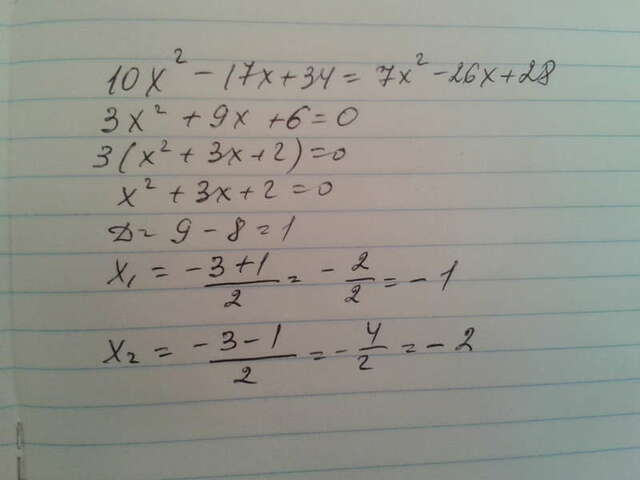 10x² - 17x + 34 = 7x² - 26x + 28
3x² + 9x + 6 = 0
3(x² + 3x + 2) = 0
x² + 3x + 2 = 0
D = 9 - 8 = 1
x₁ = (-3+1)/2 = -2/2 = -1
x₂ = (-3-1)/2 = -4/2 = -2